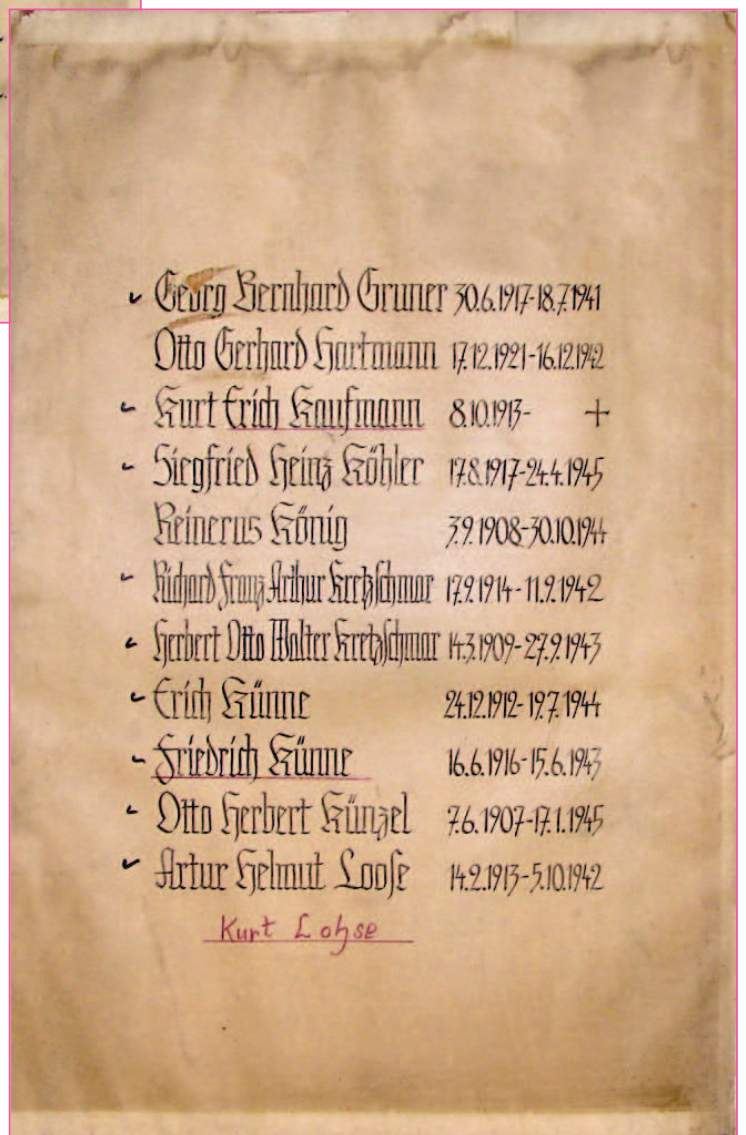 Georg Bernhard Gruner 30.6.1917-18.7.1941
Otto Gerhard Hartmann 17.12.1921-16.12.1942
Kurt Erich Kaufmann 8.10.1913- +
Siegfried Heinz Köhler 17.8.1917-24.4.1945
Reinerus König 3.9.1908-30.10.1944
Richard Franz Arthur Kretzschmar 17.9.1914-11.9.1942
Herbert Otto Walter Kretzschmar 14.3.1909-27.9.1943
Erich Künne 24.12.1912-19.7.1944
Friedrich Künne 16.6.1916-15.6.1943
Otto Herbert Künzel 7.6.1907-17.1.1945
Artur Helmut Loose 14.2.1913-5.10.1942
Kurt Lohse